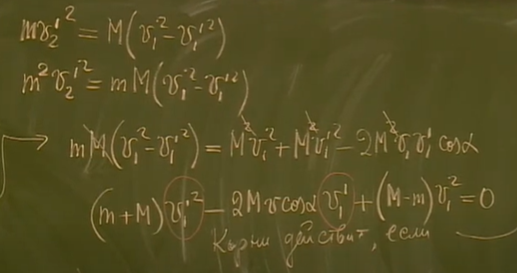 mv₂'² = M(v₁² - v₁'²)
m²v₂'² = mM(v₁² - v₁'²)
mM(v₁² - v₁'²) = M²v₁² + M²v₁'² - 2M²v₁v₁' cosα
(m+M)v₁'² - 2Mv cosα v₁' + (M-m)v₁² = 0
Корни действит, если